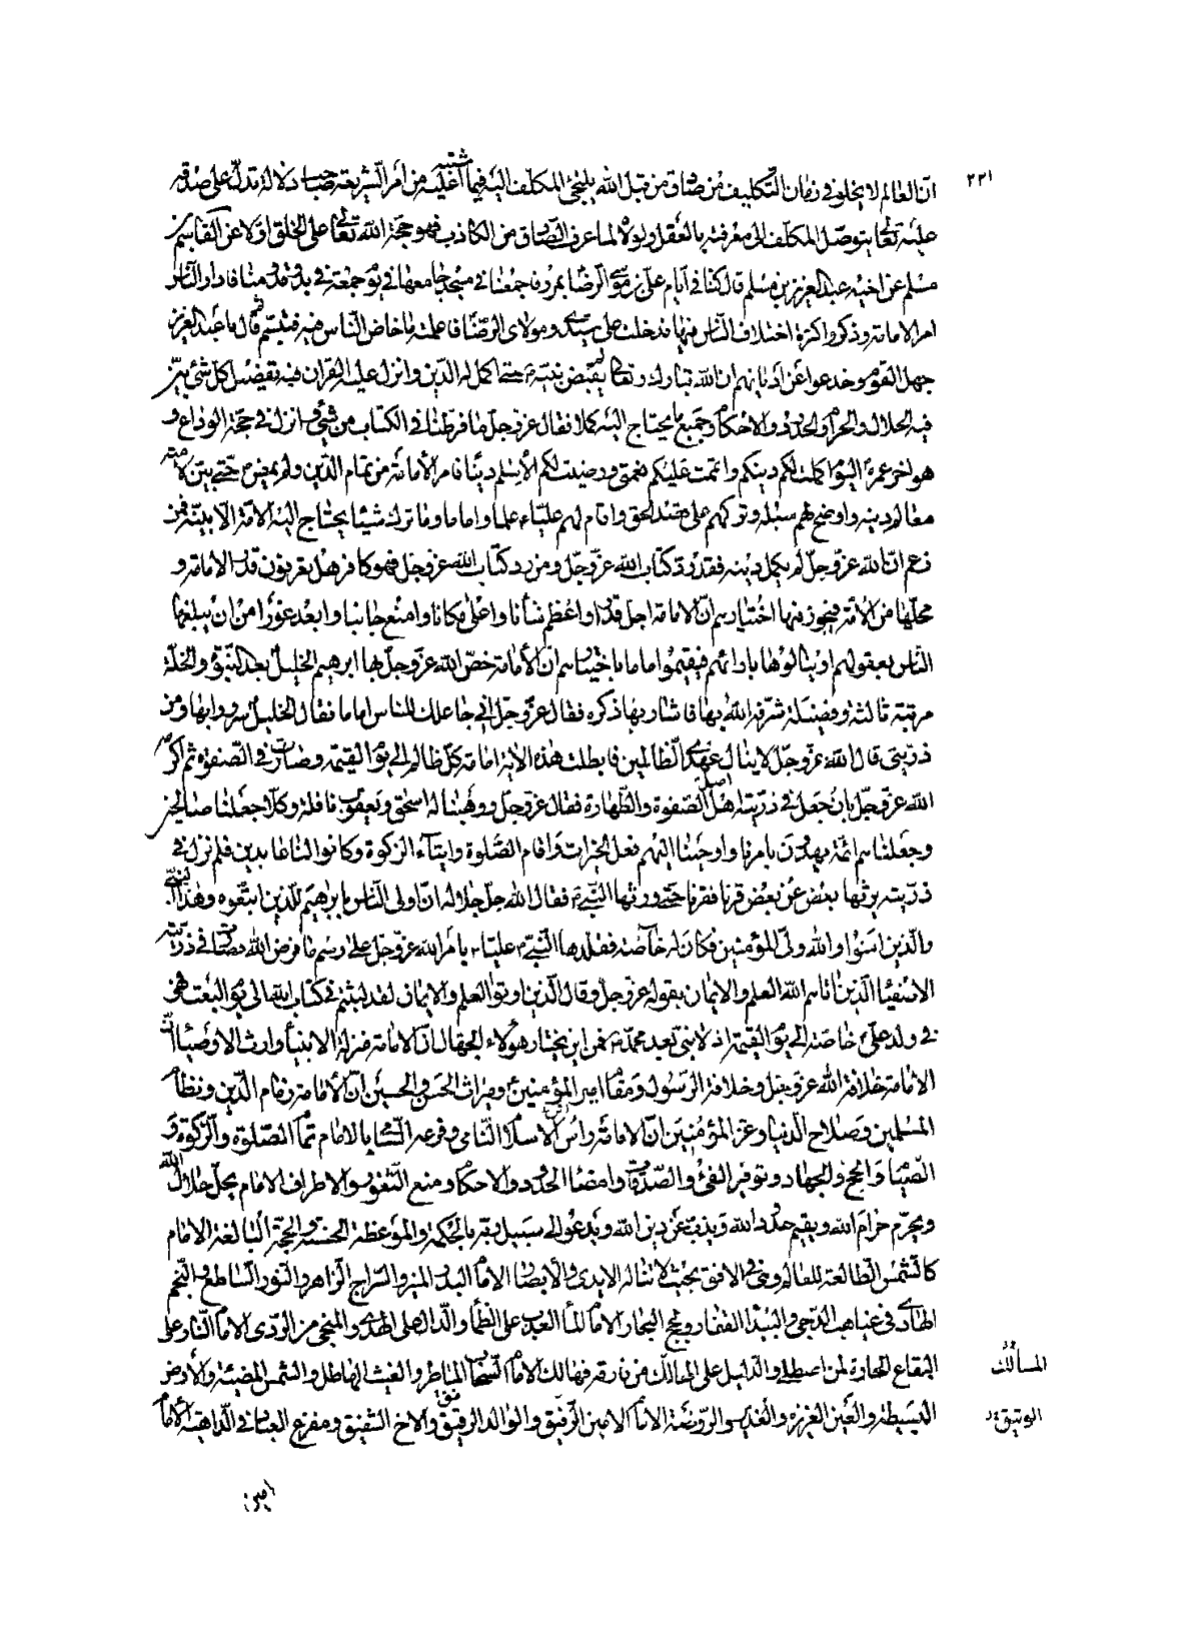 ٢٢١
انّ العالم لا يخلو فى زمان التكليف من صادق من قبل الله يلتجئ المكلف اليه فيما اشتبه عليه من امر الشريعة صاحب دلالة تدلّ على صدقه
عليه تعالى يتوصّل المكلّف الى معرفته بالعقل ولولاه لما عرف الصادق من الكاذب فهو حجة الله تعالى على الخلق اوّلا عن القاسم بن
مسلم عن اخيه عبد العزيز بن مسلم قال كنا فى ايام على بن موسى الرّضا بمرو فاجتمعنا فى مسجد جامعها فى يوم جمعة فى بدو قدومنا فادار النّاس
امر الامامة وذكروا كثرة اختلاف النّاس فيها فدخلت على سيّدى ومولاى الرّضا فاعلمته ما خاض النّاس فيه فتبسّم ثم قال يا عبد العزيز
جهل القوم وخدعوا عن اديانهم ان الله تبارك وتعالى لم يقبض نبيّه حتى اكمل له الدّين وانزل عليه القران فيه تفضيل كل شئ بيّن
فيه الحلال والحرام والحدود والاحكام وجميع ما يحتاج اليه كملا فقال عزوجل ما فرطنا فى الكتاب من شئ وانزل فى حجة الوداع و
هو اخر عمره اليوم اكملت لكم دينكم واتممت عليكم نعمتى ورضيت لكم الاسلم دينا فامر الأمامة من تمام الدّين ولم يمض حتى بيّن لامّته
معالم دينه واوضح لهم سبله وتركهم على قصد الحق واقام لهم عليّا علما واماما وما ترك شيئا يحتاج اليه الامّة الّا بيّنه فمن
زعم انّ الله عزّوجلّ لم يكمل دينه فقد ردّ كتاب الله عزّوجلّ ومن رد كتاب الله عزوجل فهو كافر هل يعرفون قدر الامامة و
محلّها من الامّة فيجوز فيها اختيارهم انّ الامامة اجل قدرا واعظم شأنا واعلى مكانا وامنع جانبا وابعد غورا من ان يبلغها
النّاس بعقولهم او ينالوها بارائهم فيقيموا اماما باختيارهم انّ الأمامة خصّ الله عزوجلّ بها ابرهيم الخليل بعد النّبوة والخلّة
مرتبة ثالثة وفضيلة شرّفه الله بها فاشار بها ذكره فقال عزوجل انى جاعلك للناس اماما فقال الخليل سرورا بها ومن
ذريتى قال الله عزوجلّ لا ينال عهدى الظالمين فابطلت هذه الاية امامة كلّ ظالم الى يوم القيمة وصارت فى الصّفوة ثم اكرمه
الله عزوجلّ بان جعل فى ذرّيته اهل الصّفوة والطّهارة فقال عزوجلّ ووهبنا له اسحق ويعقوب نافلة وكلّا جعلنا صالحين
وجعلناهم ائمّة يهدون بامرنا واوحينا اليهم فعل الخيرات واقام الصّلوة وايتآء الزكوة وكانوا لنا عابدين فلم تزل فى
ذريته يرثها بعض عن بعض قرنا فقرنا حتى ورثها النّبى فقال الله جلّ جلاله انّ اولى النّاس بابرهيم للّذين اتبعوه وهذا النبى
والّذين امنوا والله ولىّ المؤمنين فكانت له خاصّة فقلدها النّبىّ عليّا بامر الله عزوجلّ على رسم ما فرض الله فصارت فى ذريّته
الاصفيا الّذين اتاهم الله العلم والايمان بقوله عزوجل وقال الّذين اوتوا العلم والايمان لقد لبثتم فى كتاب الله الى يوم البعث فهى
فى ولد علىّ خاصّة الى يوم القيمة اذ لا نبى بعد محمد فمن اين يختار هؤلاء الجهال انّ الامامة منزلة الانبياء وارث الاوصياء انّ
الامامة خلافة الله عزوجل وخلافة الرّسول ومقام امير المؤمنين وميراث الحسن والحسين انّ الأمامة زمام الدّين ونظام
المسلمين وصلاح الدّنيا وعز المؤمنين انّ الامامة راسّ الاسلام النّامى وفرعه السّامى بالامام تمام الصّلوة والزّكوة و
الصّيام والحج والجهاد وتوفير الفئ والصّدقات وامضاء الحدود والاحكام ومنع الثّغور والاطراف الامام يحلّ حلال الله
ويحرّم حرام الله ويقيم حدود الله ويذبّ عن دين الله ويدعو الى سبيل ربّه بالحكمة والموعظة الحسنة والحجّة البالغة الامام
كالشّمس الطّالعة للعالم وهى فى الافق بحيث لا تناله الايدى والابصار الامام البدر المنير والسّراج الزّاهر والنّور السّاطع والنّجم
الهادى فى غياهب الدّجى والبيد القفار ولجج البحار الامام الماء العذب على الظّمأ والدّال على الهدى والمنجى من الرّدى الامام النار على
البقاع الحارة لمن اصطلى والدّليل على المسالك من فارقه فهالك الامام السّحاب الماطر والغيث الهاطل والشّمس المضيئة والأرض
المسالك
البسيطة والعين الغزيرة والغدير والرّوضة الامام الامين الرّفيق والوالد الرقيق والاخ الشّفيق ومفزع العباد فى الدّاهية الأمام
امين